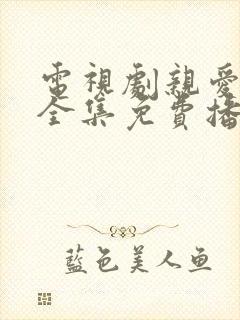 電視劇親愛
全集免費播
藍色美人鱼